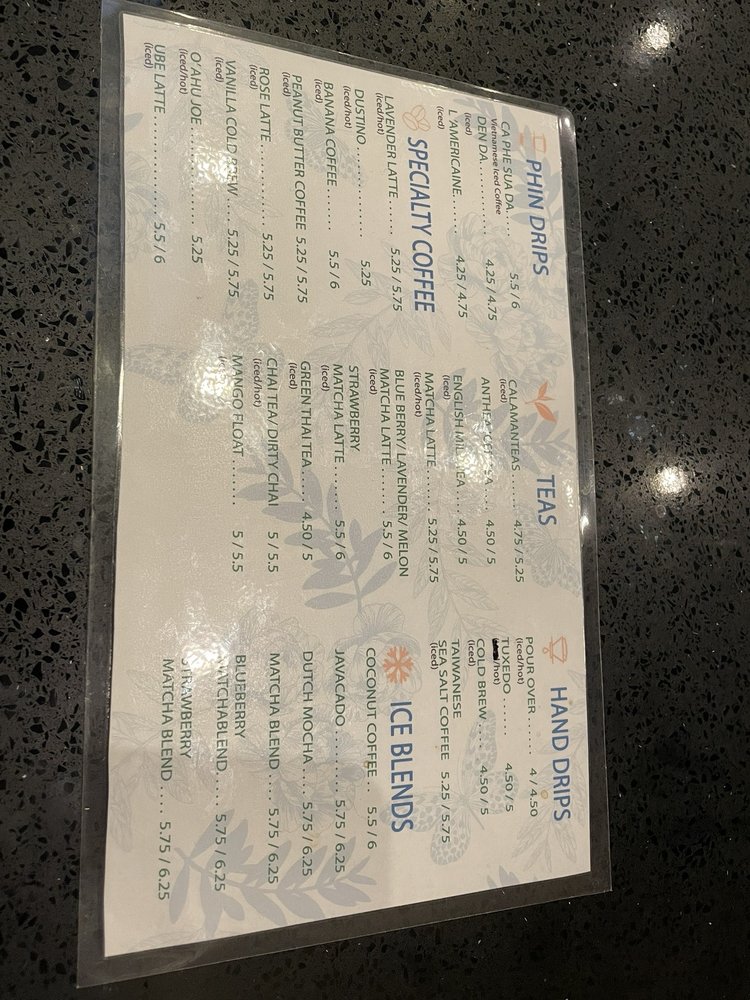 PHIN DRIPS
CA PHE SUA DA .... 5.5 / 6
Vietnamese Iced Coffee
DEN DA ........ 4.25 / 4.75
(iced)
L'AMERICAINE ..... 4.25 / 4.75
(iced)
SPECIALTY COFFEE
LAVENDER LATTE ..... 5.25 / 5.75
(iced/hot)
DUSTINO ............ 5.25
(iced/hot)
BANANA COFFEE ...... 5.5 / 6
(iced)
PEANUT BUTTER COFFEE 5.25 / 5.75
(iced)
ROSE LATTE .......... 5.25 / 5.75
(iced)
VANILLA COLD BREW .... 5.25 / 5.75
(iced)
O'AHU JOE ............ 5.25
(iced/hot)
UBE LATTE ............ 5.5 / 6
(iced)
TEAS
CALAMANTEAS ..... 4.75 / 5.25
(iced)
4.50 / 5
ENGLISH MILK TEA .... 4.50 / 5
(iced)
MATCHA LATTE ...... 5.25 / 5.75
(iced/hot)
BLUE BERRY/ LAVENDER/ MELON
MATCHA LATTE ...... 5.5 / 6
(iced)
STRAWBERRY
MATCHA LATTE ...... 5.5 / 6
(iced)
GREEN THAI TEA ..... 4.50 / 5
(iced)
CHAI TEA/ DIRTY CHAI 5 / 5.5
(iced/hot)
MANGO FLOAT ........ 5 / 5.5
HAND DRIPS
POUR OVER ....... 4 / 4.50
(iced/hot)
TUXEDO ...... 4.50 / 5
/hot)
COLD BREW .... 4.50 / 5
(iced)
TAIWANESE
SEA SALT COFFEE 5.25 / 5.75
(iced)
ICE BLENDS
COCONUT COFFEE .. 5.5 / 6
JAVACADO ........ 5.75 / 6.25
DUTCH MOCHA .... 5.75 / 6.25
MATCHA BLEND .... 5.75 / 6.25
BLUEBERRY
MATCHABLEND .... 5.75 / 6.25
STRAWBERRY
MATCHA BLEND .... 5.75 / 6.25